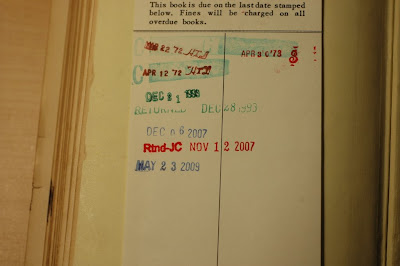 This book is due on the last date stamped
below. Fines will be charged on all
overdue books.
MAR 22 '72
APR 30 '73
APR 12 '72
DEC 21 1993
RETURNED DEC 28 1993
DEC 06 2007
Rtnd-JC NOV 12 2007
MAY 23 2009